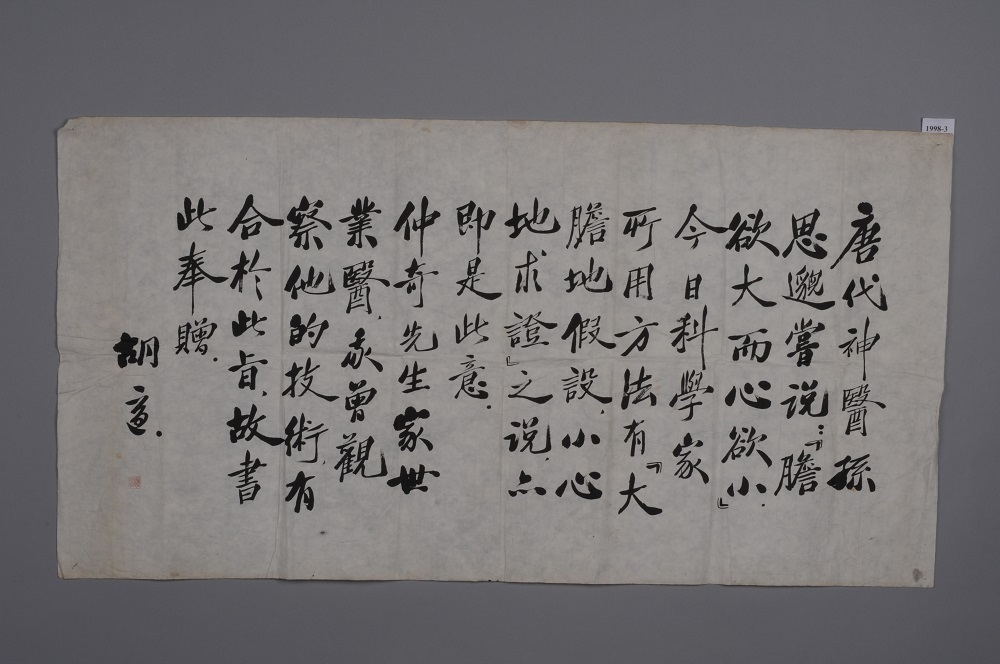 唐代神醫孫
思邈嘗說：『膽
欲大而心欲小．』
今日科學家
所用方法有『大
膽地假設，小心
地求證』之說，亦
即是此意．
仲奇先生家世
業醫，我曾觀
察他的技術，有
合於此旨，故書
此奉贈．
胡適．
1998-3